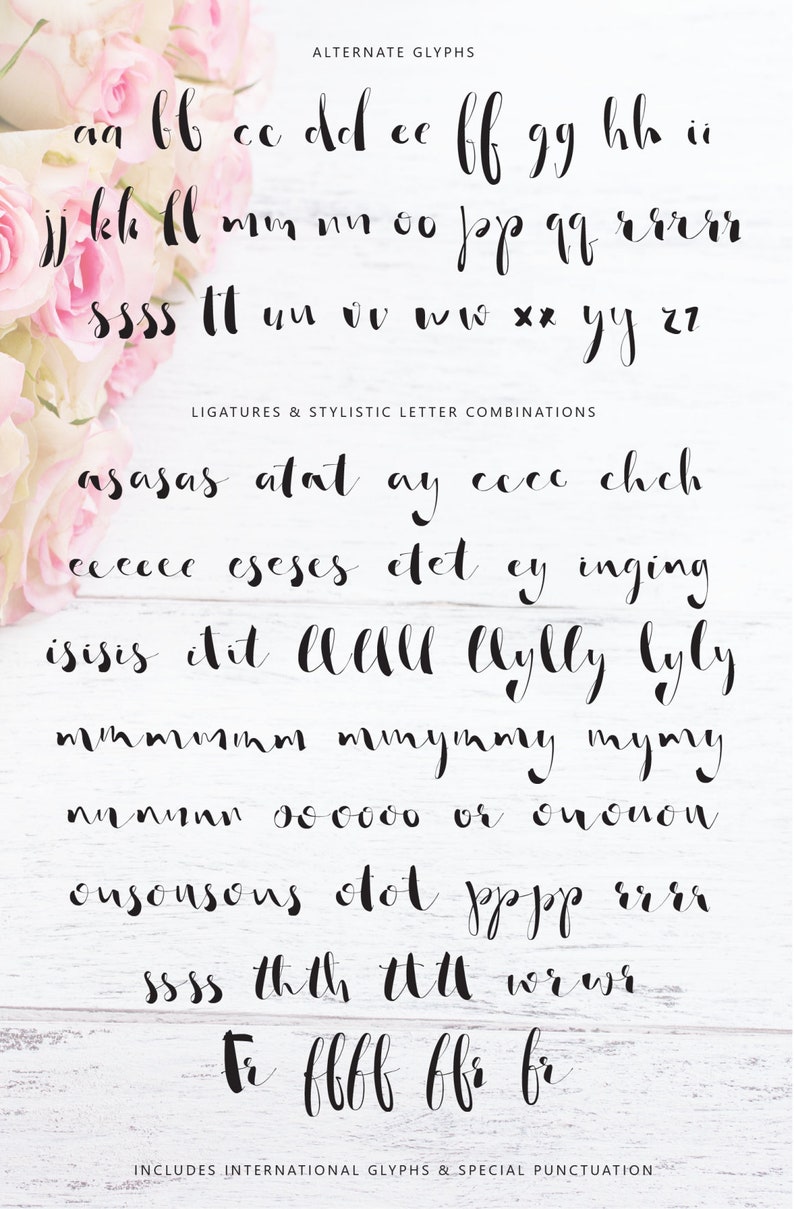 ALTERNATE GLYPHS
aa bb cc dd ee ff gg hh ii
jj kk ll mm nn oo pp qq rrrrr
ssss tt uu vv ww xx yy zz
LIGATURES & STYLISTIC LETTER COMBINATIONS
asasas atat ay cccc chch
eeeeee eseses etet ey inging
isisis itit llllll llylly lyly
mmmmmm mmymmy mymy
nnnnnn oooooo or ououou
ousousous otot pppp rrrr
ssss thth tttt wrwr
Fr ffff ffr fr
INCLUDES INTERNATIONAL GLYPHS & SPECIAL PUNCTUATION